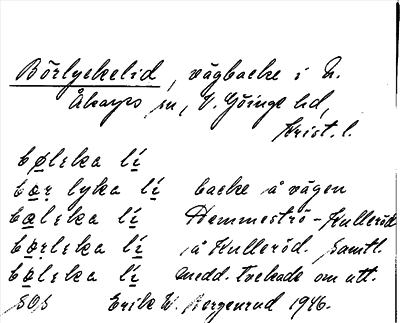 Börlyckelid, vägbacke i N.
Åkarps sn, V. Göinge hd,
Krist. l.
bø̲lɛka lí̲
bœ̲r lyka lí̲ backe å vägen
bœ̲lɛka lí̲ Hemmeströ - Kulleröd
bœ̲rlɛka lí̲ å Kulleröd. Samtl.
bö̲lɛka lí̲ medd. tvekade om utt.
SOS Erik W. Bergenrud 1946.